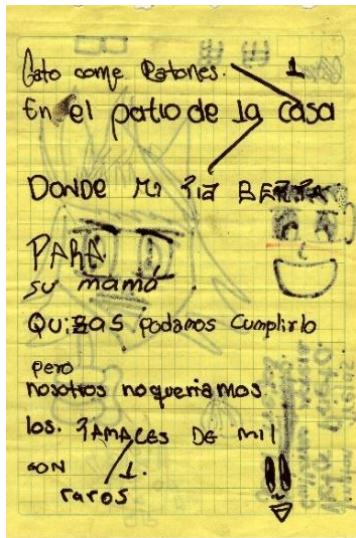 Gato come Ratones. 1
En el patio de la casa
DONDE Mi Tia BERTA
PARA
su mamá
QUizaS Podamos Cumplirlo
pero
nosotros noqueriamos
los. TAMALES DE Mil
SON 1.
raros